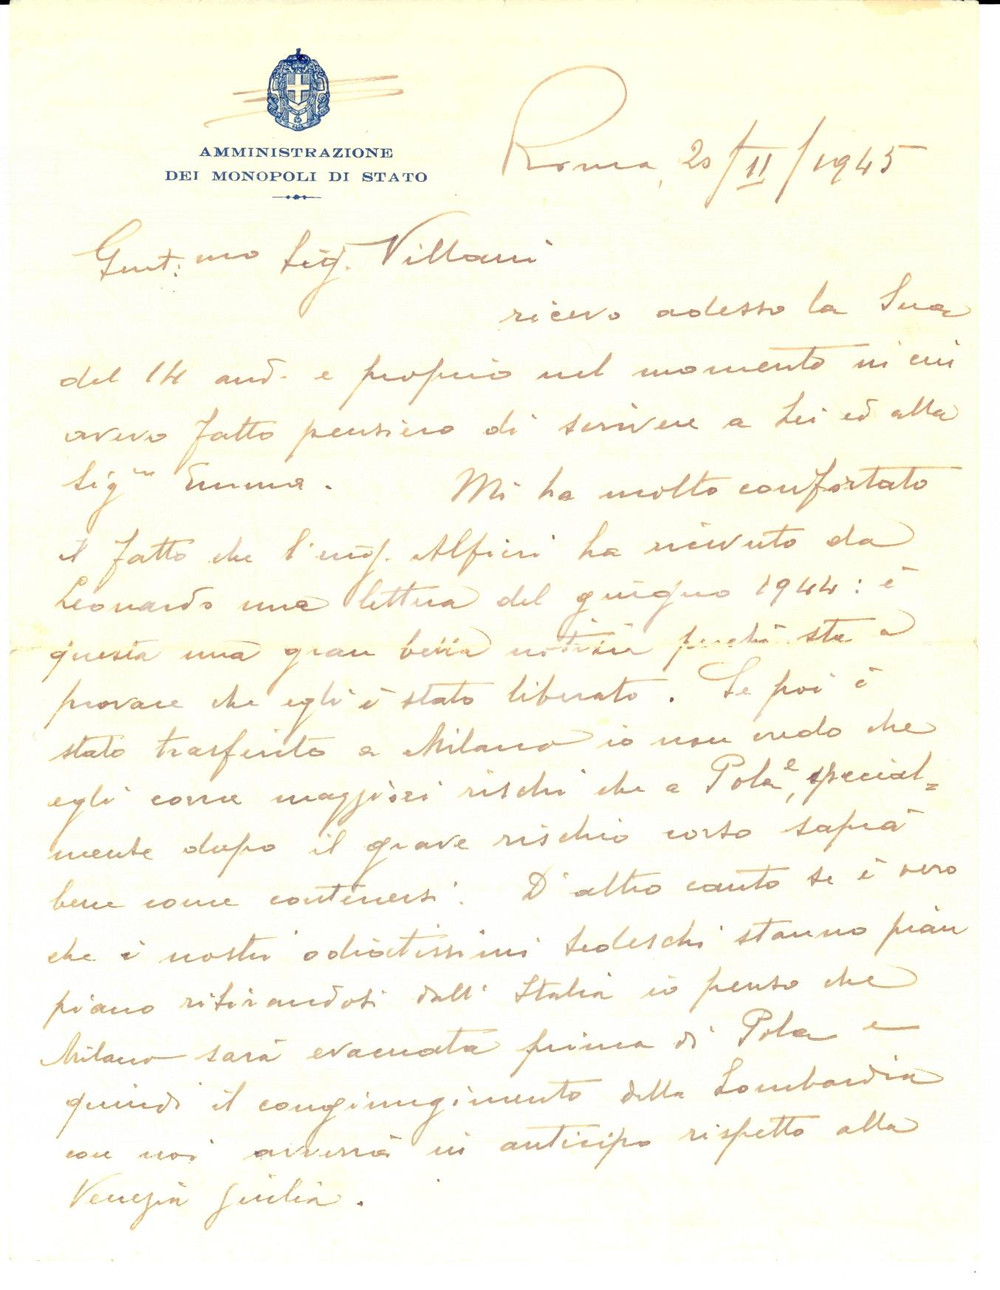 AMMINISTRAZIONE
DEI MONOPOLI DI STATO
Roma, 20/II/1945
Gent.mo Sig. Villani
ricevo adesso la Sua
del 14 and. e proprio nel momento in cui
avevo fatto pensiero di scrivere a Lei ed alla
Sig.ra Emma. Mi ha molto confortato
il fatto che l'ing. Alfieri ha ricevuto da
Leonardo una lettera del giugno 1944: è
questa una gran bella notizia perché sta a
provare che egli è stato liberato. Se poi è
stato trasferito a Milano io non credo che
egli corra maggiori rischi che a Pola e, special=
mente dopo il grave rischio corso saprà
bene come contenersi. D'altro canto se è vero
che i nostri odiatissimi tedeschi stanno pian
piano ritirandosi dall'Italia io penso che
Milano sarà evacuata prima di Pola e
quindi il congiungimento della Lombardia
con noi avverrà in anticipo rispetto alla
Venezia Giulia.